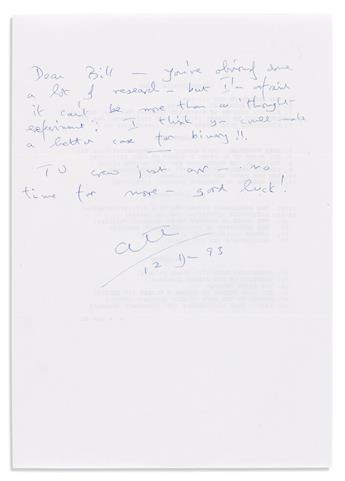 Dear Bill — you've obviously done
a lot of research — but I'm afraid
it can't be more than a 'thought-
experiment'. I think you could make
a better case for binary!!
TV crew just arr — no
time for more — good luck!
93